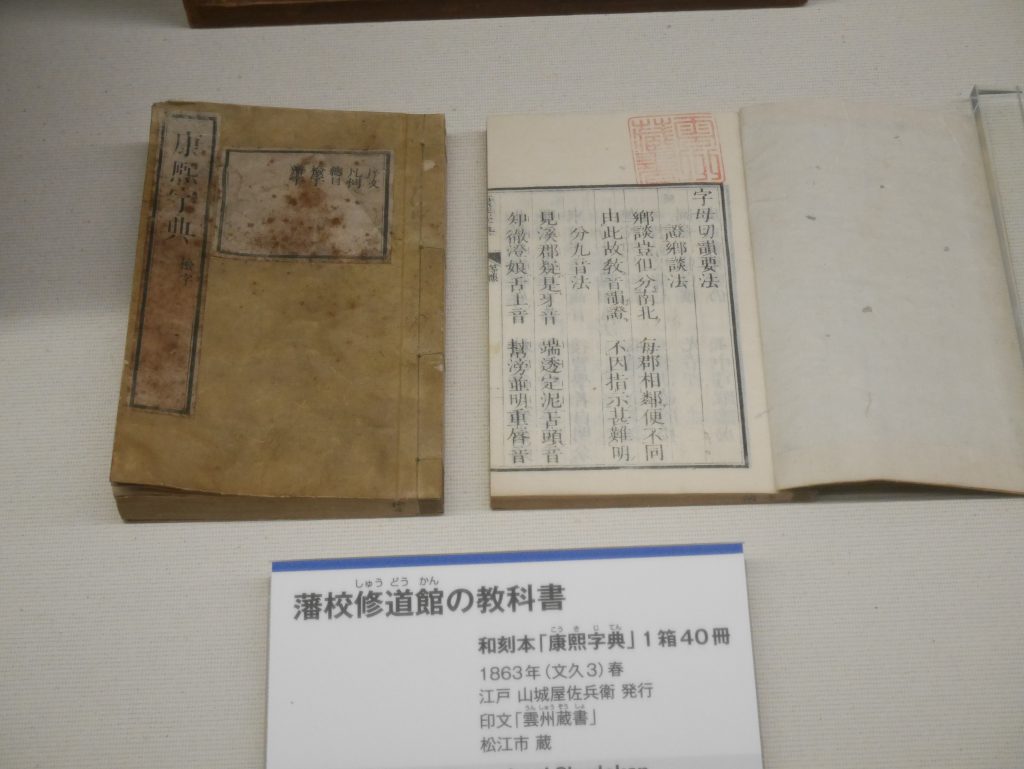 康熙字典
序文
凡例
總目
檢字
辨字
字母切韻要法
證鄉談法
鄉談豈但分南北 每郡相鄰便不同
由此故教音韻證 不因指示甚難明
分九音法
見溪郡疑是牙音 端透定泥舌頭音
知徹澄娘舌上音 幫滂並明重唇音
雲州
藏書
しゅう どう かん
藩校修道館の教科書
こう き じ てん
和刻本「康熙字典」1箱40冊
1863年(文久3)春
江戸 山城屋佐兵衛 発行
うんしゅうぞうしょ
印文「雲州蔵書」
松江市 蔵